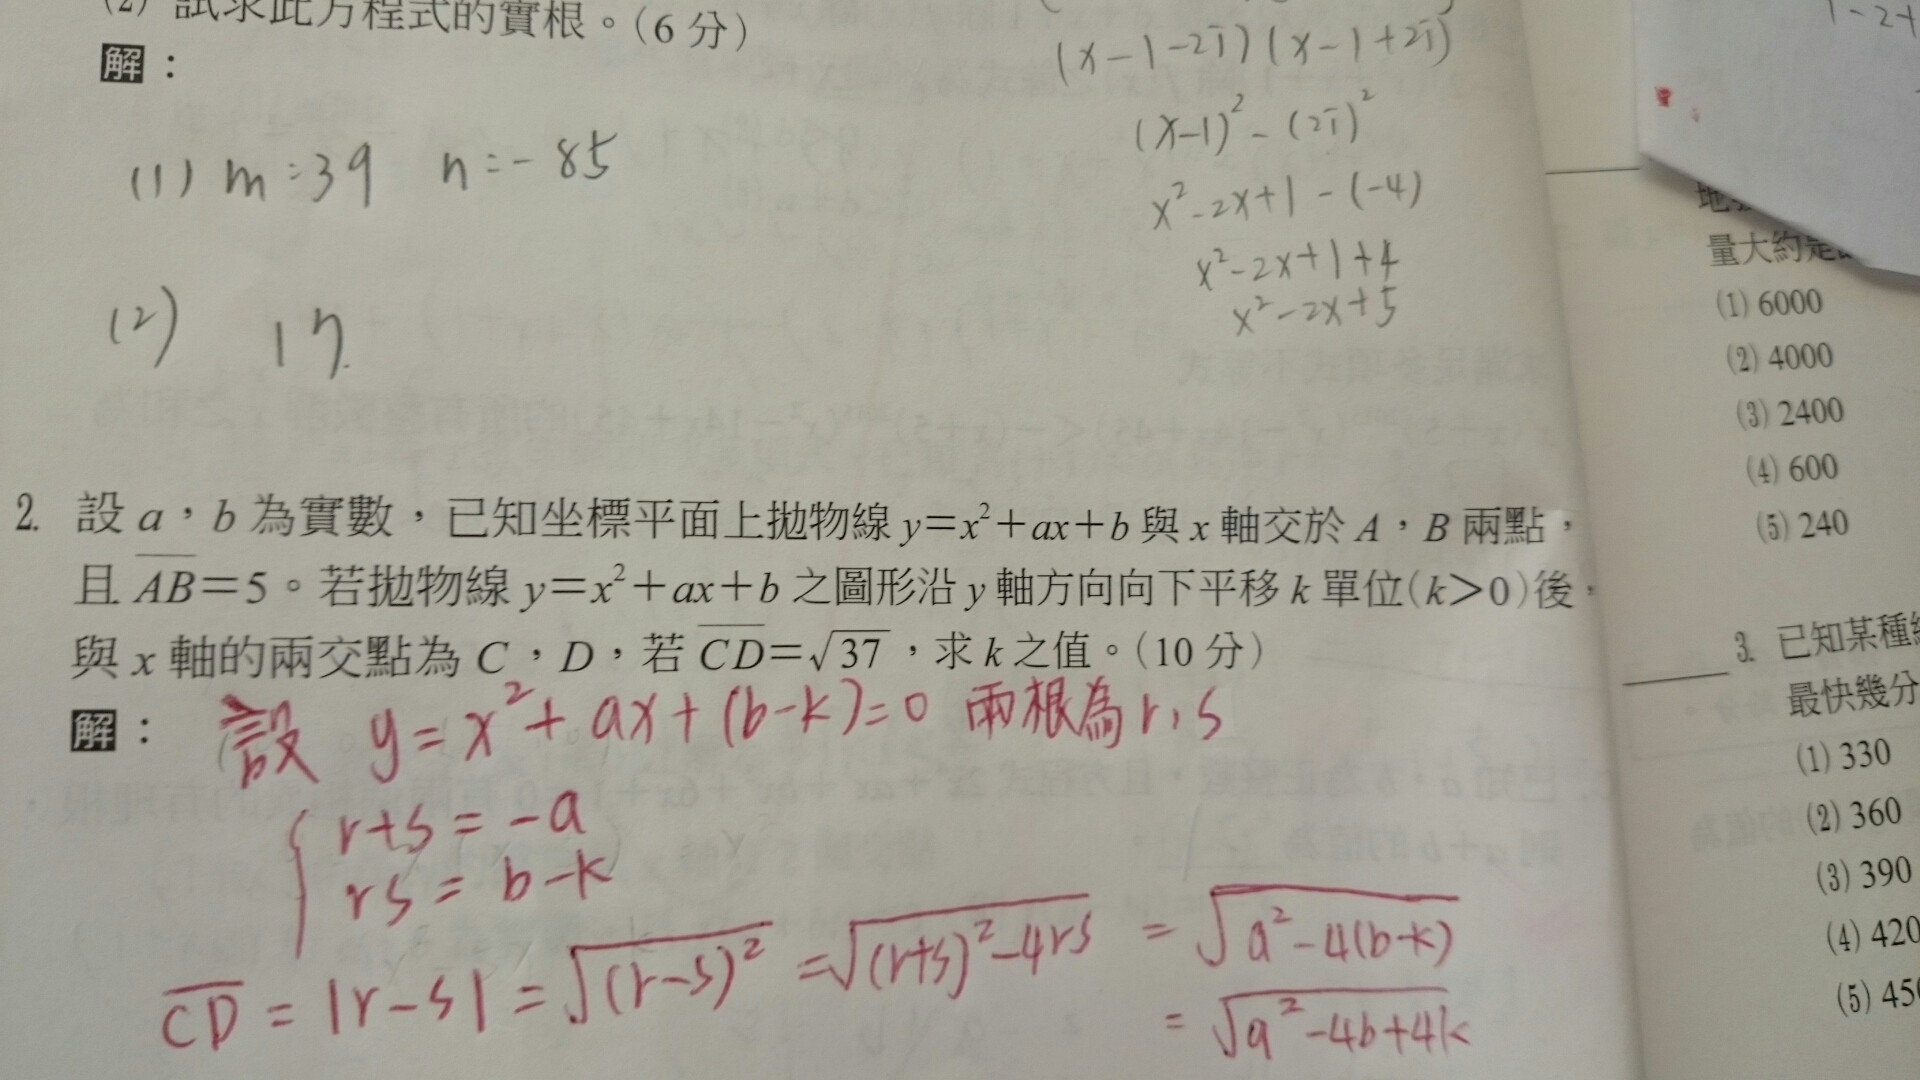 (2) 試求此方程式的實根。(6分)
解：
(1) m=39 n=-85
(2) 17.
(x-1-2i)(x-1+2i)
(x-1)²-(2i)²
x²-2x+1-(-4)
x²-2x+1+4
x²-2x+5
2. 設 a，b 為實數，已知坐標平面上拋物線 y=x²+ax+b 與 x 軸交於 A，B 兩點，
且 \overline{AB}=5。若拋物線 y=x²+ax+b 之圖形沿 y 軸方向向下平移 k 單位(k>0)後，
與 x 軸的兩交點為 C，D，若 \overline{CD}=√37，求 k 之值。(10分)
解：設 y=x²+ax+(b-k)=0 兩根為 r,s
r+s=-a
rs=b-k
\overline{CD}=|r-s|=√(r-s)²=√(r+s)²-4rs=√a²-4(b-k)
=√a²-4b+4k
1-2+
量大約是
(1) 6000
(2) 4000
(3) 2400
(4) 600
(5) 240
3. 已知某種
最快幾分
(1) 330
(2) 360
(3) 390
(4) 420
(5) 450